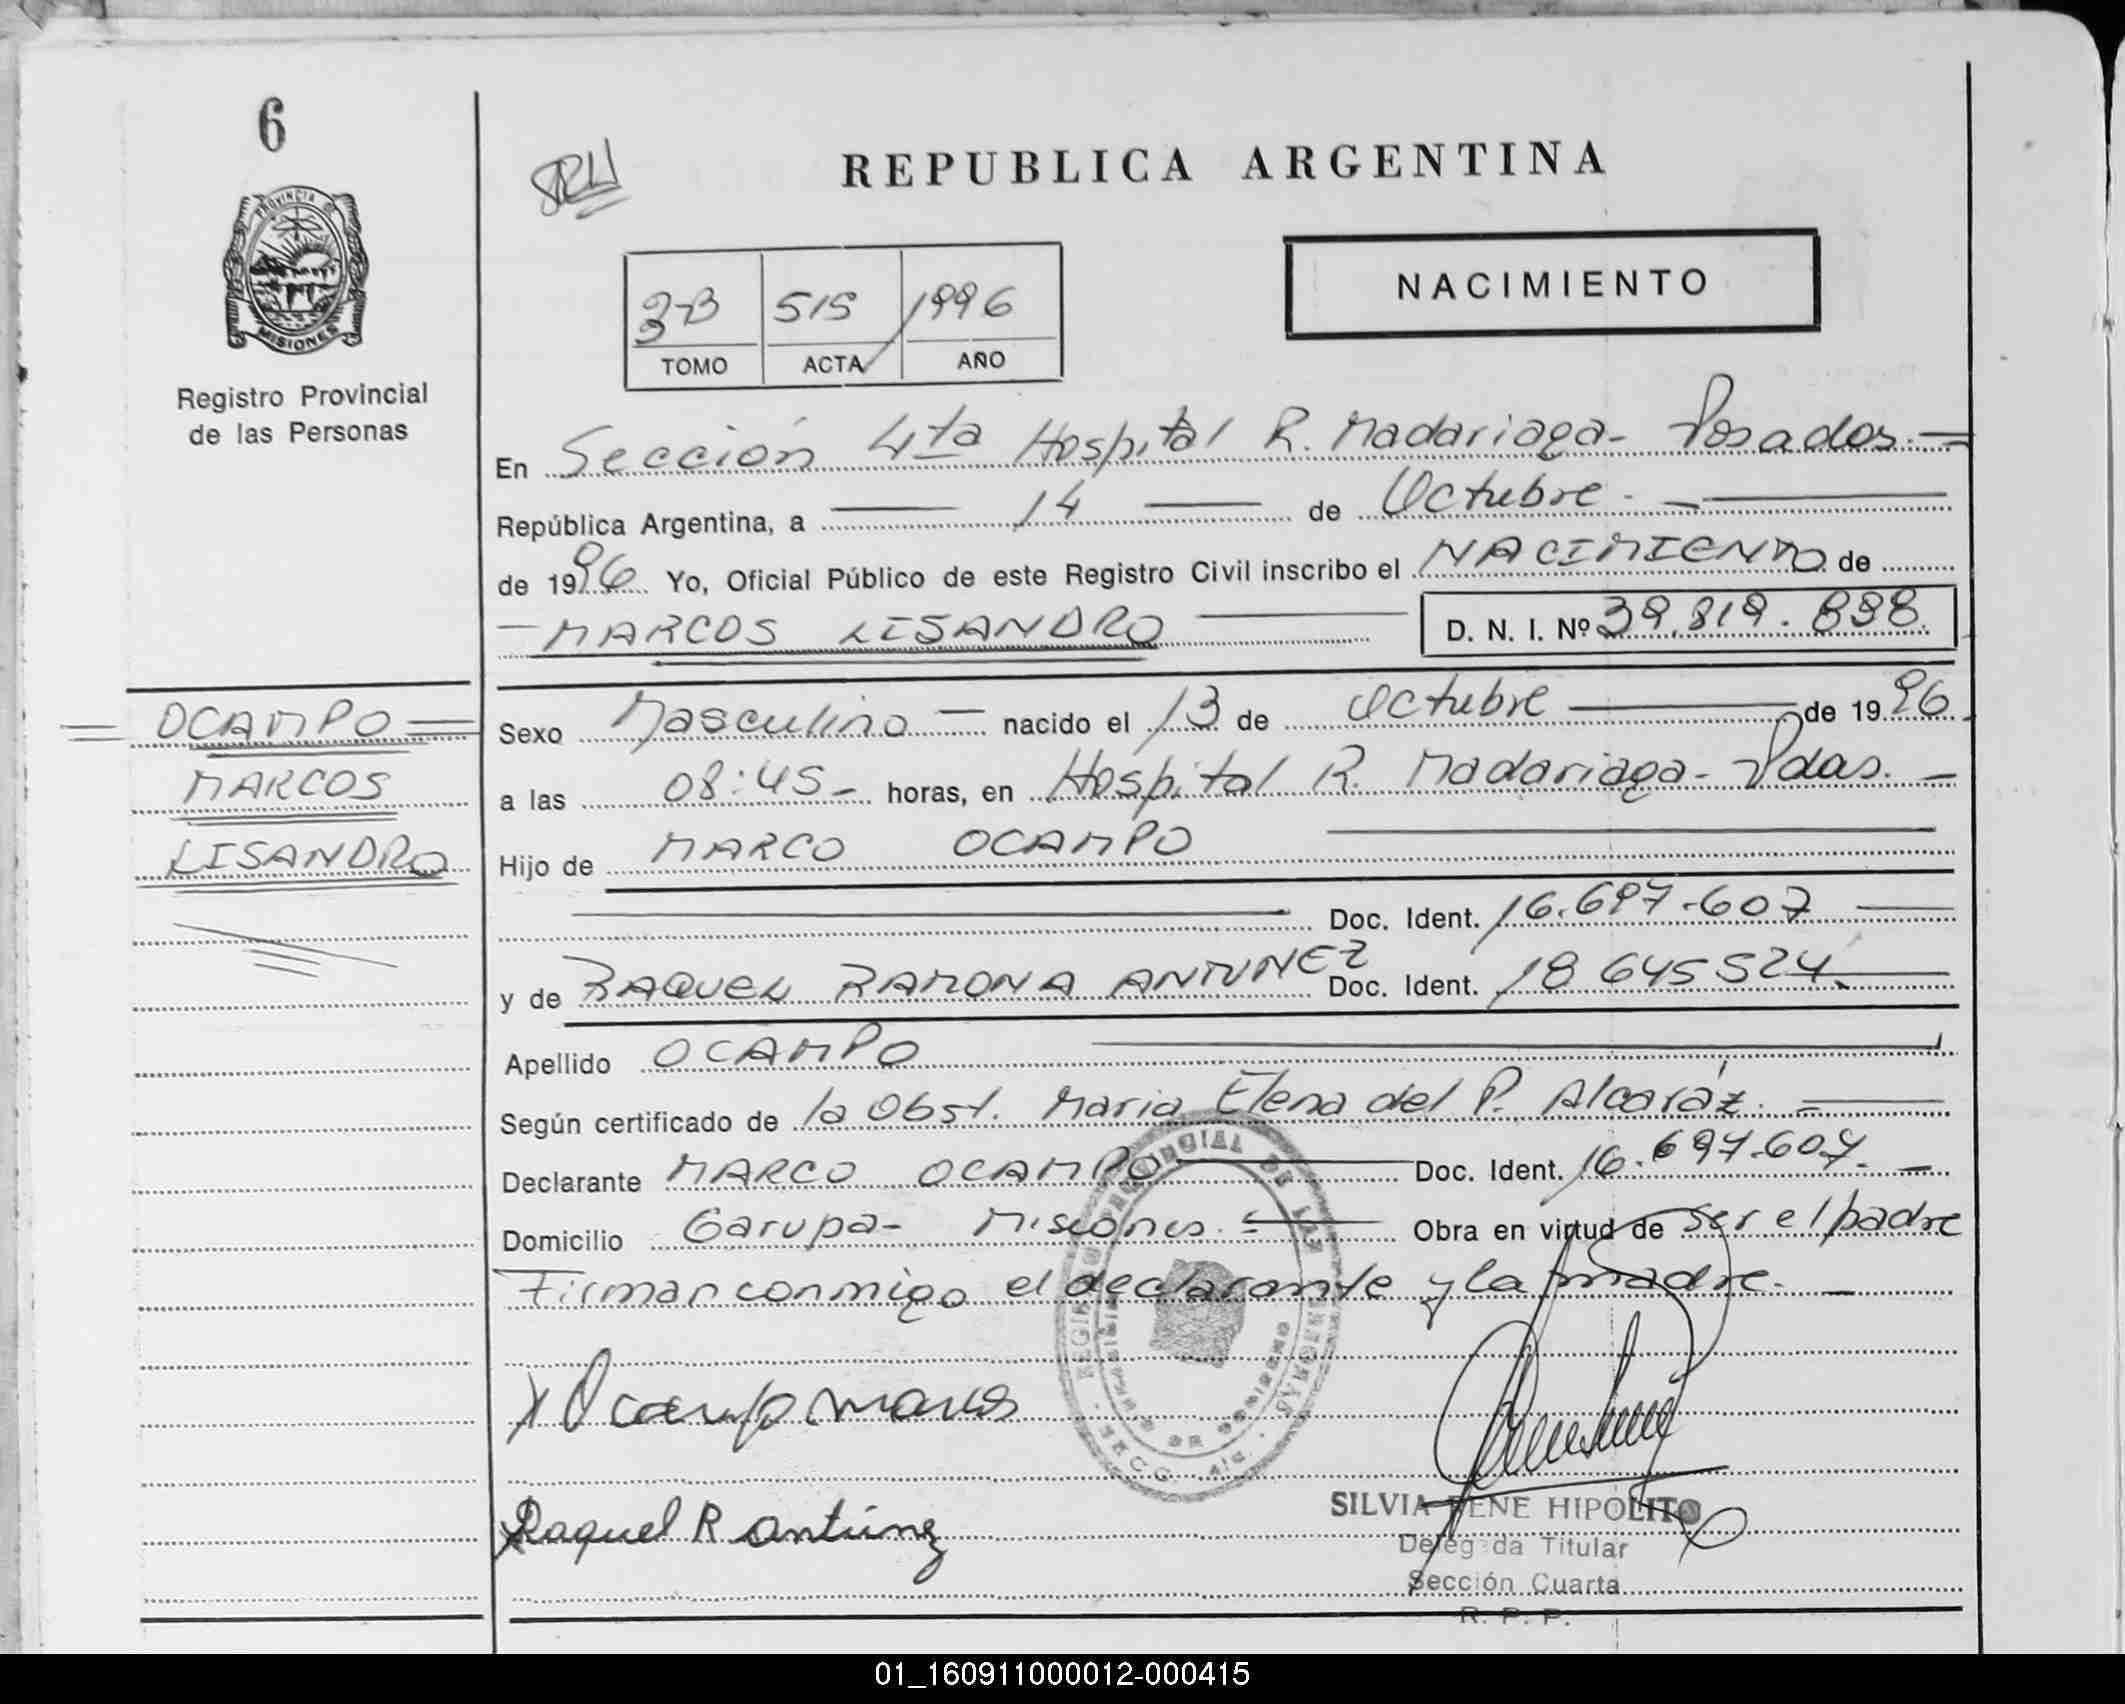 6
PROVINCIA DE
MISIONES
Registro Provincial
de las Personas
REPUBLICA ARGENTINA
3-B 515 1996
TOMO ACTA AÑO
NACIMIENTO
En Sección 4ta Hospital R. Madariaga- Posadas.-
República Argentina, a 14 de Octubre.-
de 1996 Yo, Oficial Público de este Registro Civil inscribo el NACIMIENTO de
MARCOS LISANDRO D. N. I. Nº 39.819.898.
OCAMPO
MARCOS
LISANDRO
Sexo Masculino - nacido el 13 de Octubre de 1996
a las 08:45- horas, en Hospital R. Madariaga- Pdas. -
Hijo de MARCO OCAMPO
Doc. Ident. 16.697.607
y de RAQUEL RAMONA ANTUNEZ Doc. Ident. 18645524.
Apellido OCAMPO
Según certificado de la Obst. Maria Elena del P. Alcaráz.-
Declarante MARCO OCAMPO Doc. Ident. 16.697.607.-
Domicilio Garupa- Misiones.- Obra en virtud de ser el padre
Firman conmigo el declarante y la madre.-
X Ocampo marcos
Raquel R Antúnez
SILVIA IRENE HIPOLITO
Delegada Titular
Sección Cuarta
R. P. P.
01_160911000012-000415